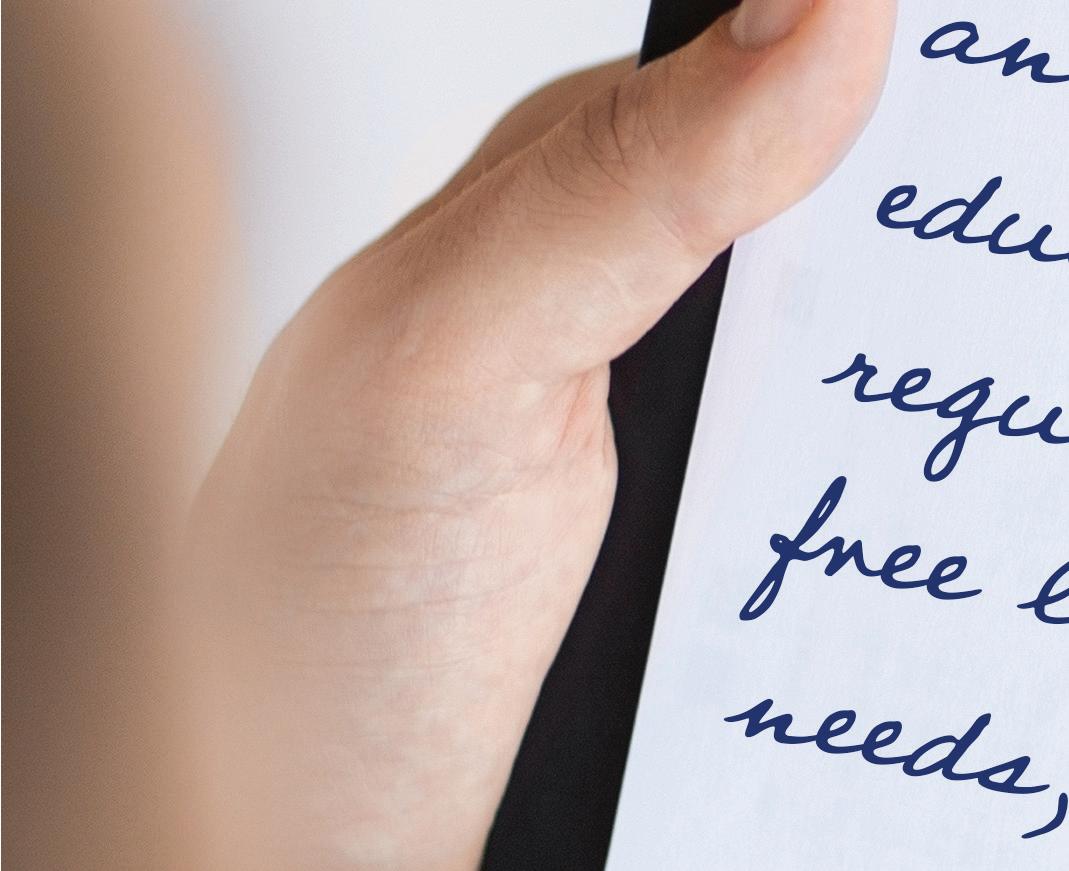 an
edu
regu
free
needs,